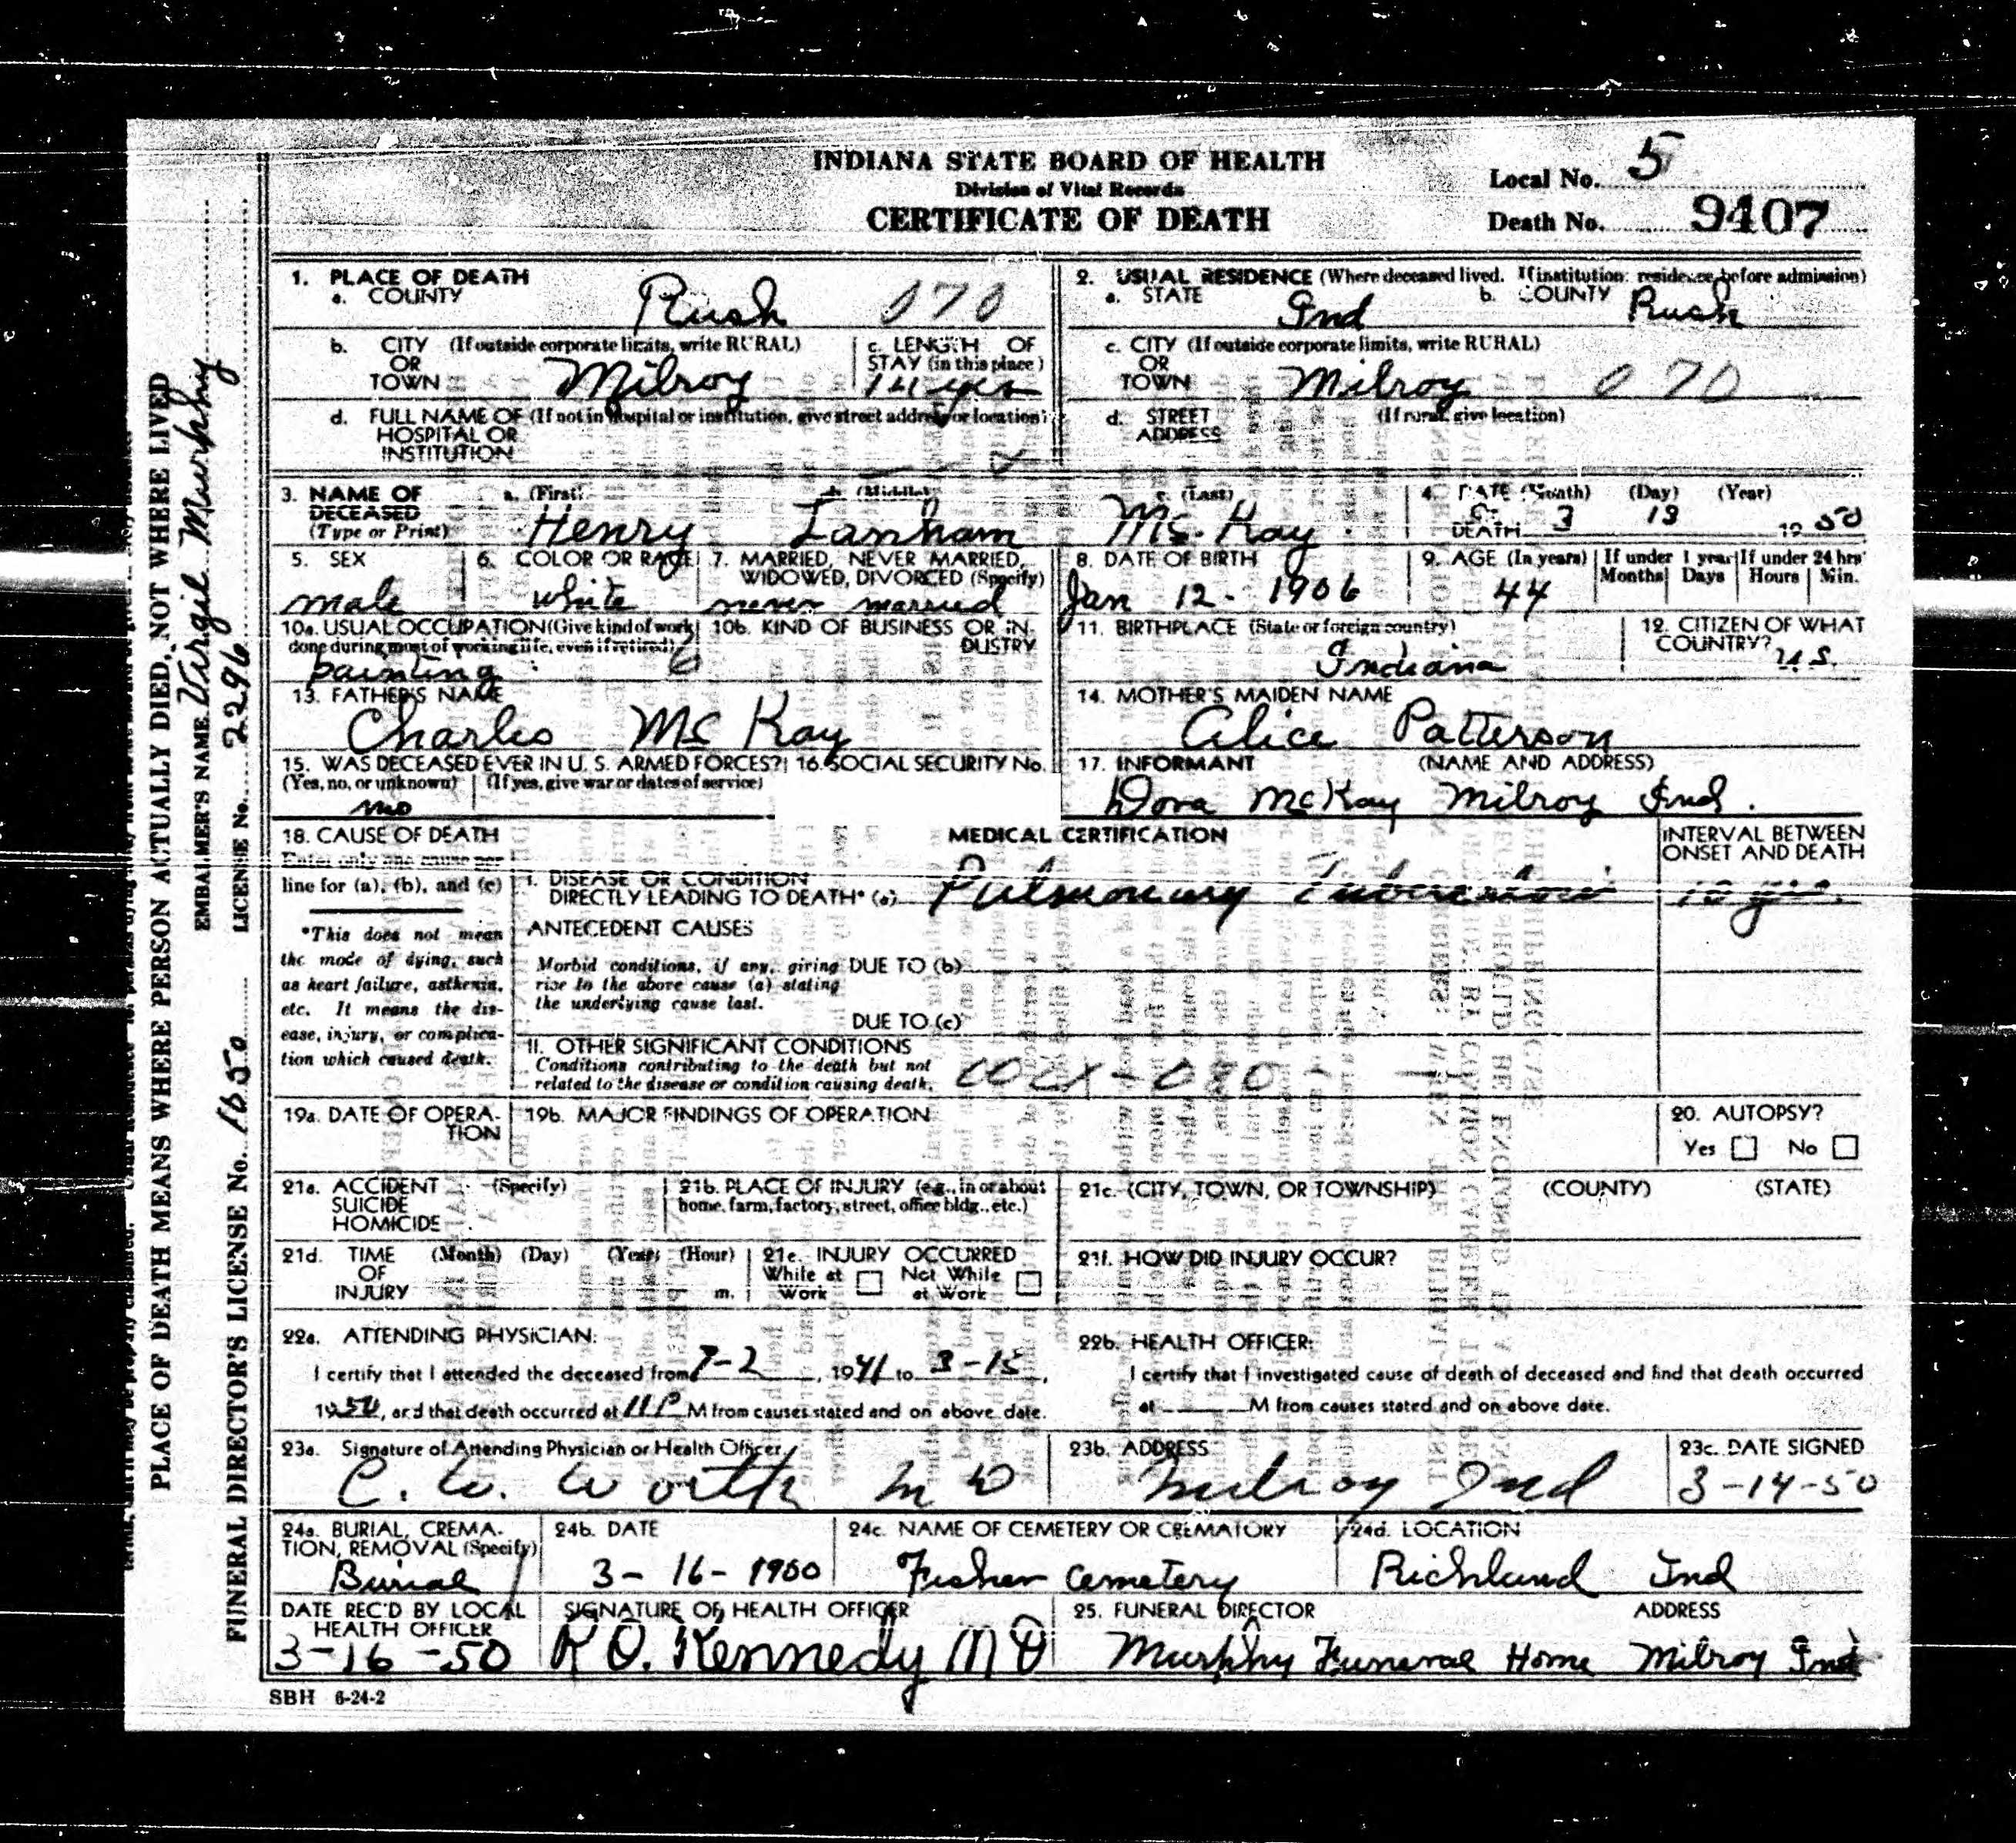 INDIANA STATE BOARD OF HEALTH
Division of Vital Records
CERTIFICATE OF DEATH
Local No. 5
Death No. 9407
1. PLACE OF DEATH
a. COUNTY Rush 070
2. USUAL RESIDENCE (Where deceased lived. If institution: residence before admission)
a. STATE Ind b. COUNTY Rush
b. CITY (If outside corporate limits, write RURAL)
OR
TOWN Milroy
c. LENGTH OF
STAY (in this place)
14 yrs
c. CITY (If outside corporate limits, write RURAL)
OR
TOWN Milroy 070
d. FULL NAME OF (If not in hospital or institution, give street address or location)
HOSPITAL OR
INSTITUTION
d. STREET (If rural, give location)
ADDRESS
3. NAME OF
DECEASED
(Type or Print)
a. (First) b. (Middle) c. (Last)
Henry Lanham Mc Kay
4. DATE (Month) (Day) (Year)
OF
DEATH 3 13 1950
5. SEX
male
6. COLOR OR RACE
white
7. MARRIED, NEVER MARRIED,
WIDOWED, DIVORCED (Specify)
never married
8. DATE OF BIRTH
Jan 12 - 1906
9. AGE (In years)
44
If under 1 year
Months Days
If under 24 hrs
Hours Min.
10a. USUAL OCCUPATION (Give kind of work
done during most of working life, even if retired)
painting
10b. KIND OF BUSINESS OR IN-
DUSTRY
11. BIRTHPLACE (State or foreign country)
Indiana
12. CITIZEN OF WHAT
COUNTRY? U.S.
13. FATHER'S NAME
Charles Mc Kay
14. MOTHER'S MAIDEN NAME
Alice Patterson
15. WAS DECEASED EVER IN U. S. ARMED FORCES?
(Yes, no, or unknown) (If yes, give war or dates of service)
no
16. SOCIAL SECURITY No.
17. INFORMANT (NAME AND ADDRESS)
Dora McKay Milroy Ind.
18. CAUSE OF DEATH
Enter only one cause per
line for (a), (b), and (c)
MEDICAL CERTIFICATION
INTERVAL BETWEEN
ONSET AND DEATH
I. DISEASE OR CONDITION
DIRECTLY LEADING TO DEATH* (a) Pulmonary Tuberculosis 10 yrs.
*This does not mean
the mode of dying, such
as heart failure, asthenia,
etc. It means the dis-
ease, injury, or complica-
tion which caused death.
ANTECEDENT CAUSES
Morbid conditions, if any, giving DUE TO (b)
rise to the above cause (a) stating
the underlying cause last.
DUE TO (c)
II. OTHER SIGNIFICANT CONDITIONS
Conditions contributing to the death but not
related to the disease or condition causing death.
19a. DATE OF OPERA-
TION
19b. MAJOR FINDINGS OF OPERATION
20. AUTOPSY?
Yes No
21a. ACCIDENT (Specify)
SUICIDE
HOMICIDE
21b. PLACE OF INJURY (e.g., in or about
home, farm, factory, street, office bldg., etc.)
21c. (CITY, TOWN, OR TOWNSHIP) (COUNTY) (STATE)
21d. TIME (Month) (Day) (Year) (Hour)
OF
INJURY m.
21e. INJURY OCCURRED
While at Work Not While at Work
21f. HOW DID INJURY OCCUR?
22a. ATTENDING PHYSICIAN:
I certify that I attended the deceased from 7-2, 1941 to 3-13,
1950, and that death occurred at 11 P M from causes stated and on above date.
22b. HEALTH OFFICER:
I certify that I investigated cause of death of deceased and find that death occurred
at M from causes stated and on above date.
23a. Signature of Attending Physician or Health Officer
C. W. Worth M D
23b. ADDRESS
Milroy Ind
23c. DATE SIGNED
3-14-50
24a. BURIAL, CREMA-
TION, REMOVAL (Specify)
Burial
24b. DATE
3-16-1950
24c. NAME OF CEMETERY OR CREMATORY
Fisher Cemetery
24d. LOCATION
Richland Ind
DATE REC'D BY LOCAL
HEALTH OFFICER
3-16-50
SIGNATURE OF HEALTH OFFICER
R O. Kennedy MD
25. FUNERAL DIRECTOR ADDRESS
Murphy Funeral Home Milroy Ind
SBH 6-24-2
PLACE OF DEATH MEANS WHERE PERSON ACTUALLY DIED, NOT WHERE LIVED
EMBALMER'S NAME Virgil Murphy
FUNERAL DIRECTOR'S LICENSE No. 1650 LICENSE No. 2296